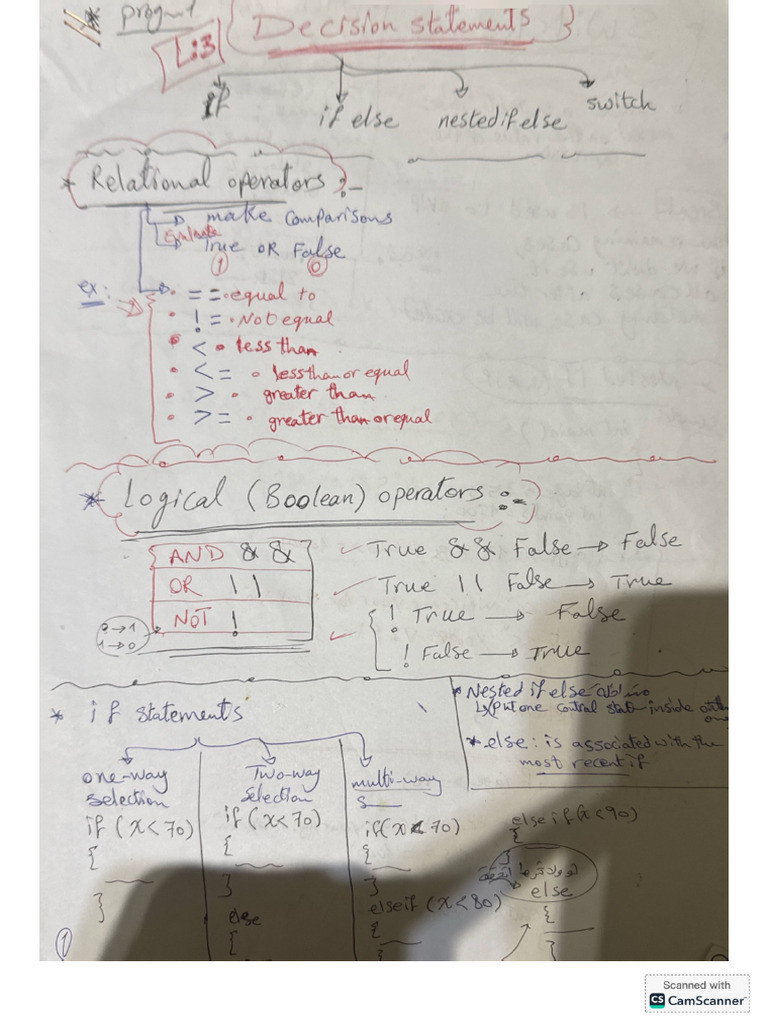 * progm1
L:3 { Decision statements }
if
if else
nested if else
switch
* Relational operators :-
make comparisons
Evaluate True OR False
1 0
ex:
• == • equal to
• != • Not equal
• < • less than
• <= • less than or equal
• > • greater than
• >= • greater than or equal
* Logical (Boolean) operators :-
AND &&
OR ||
NOT !
0 → 1
1 → 0
✓ True && False → False
✓ True || False → True
✓ ! True → False
! False → True
* if statements
one-way selection
if (x < 70)
{
}
Two-way selection
if (x < 70)
{
}
else
{
multi-way
S
if (x < 70)
{
}
else if (x < 80)
{
}
* Nested if else
Put one control stat inside
* else : is associated with the
most recent if
else if (x < 90)
{
}
else
{
1
Scanned with
CS CamScanner